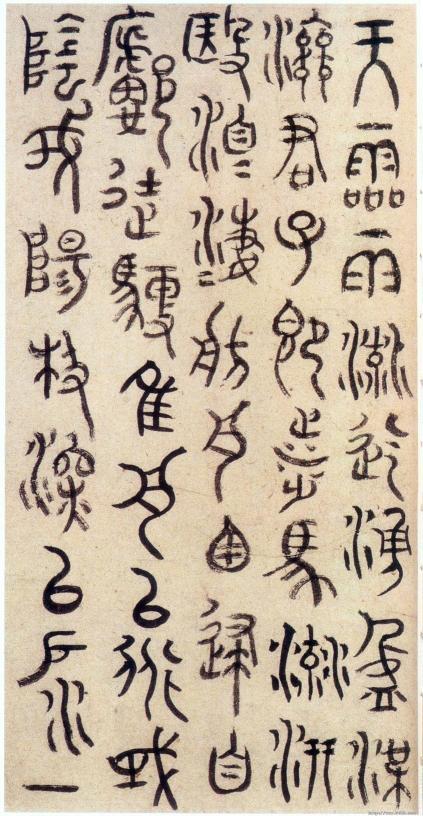 天霝雨流迄湧盈渫
濟君子即涉馬流汧
殹洎〓淒〓舫舟囱逮自
廊徒馭隹舟以衍或
陰或陽极深以戶水一